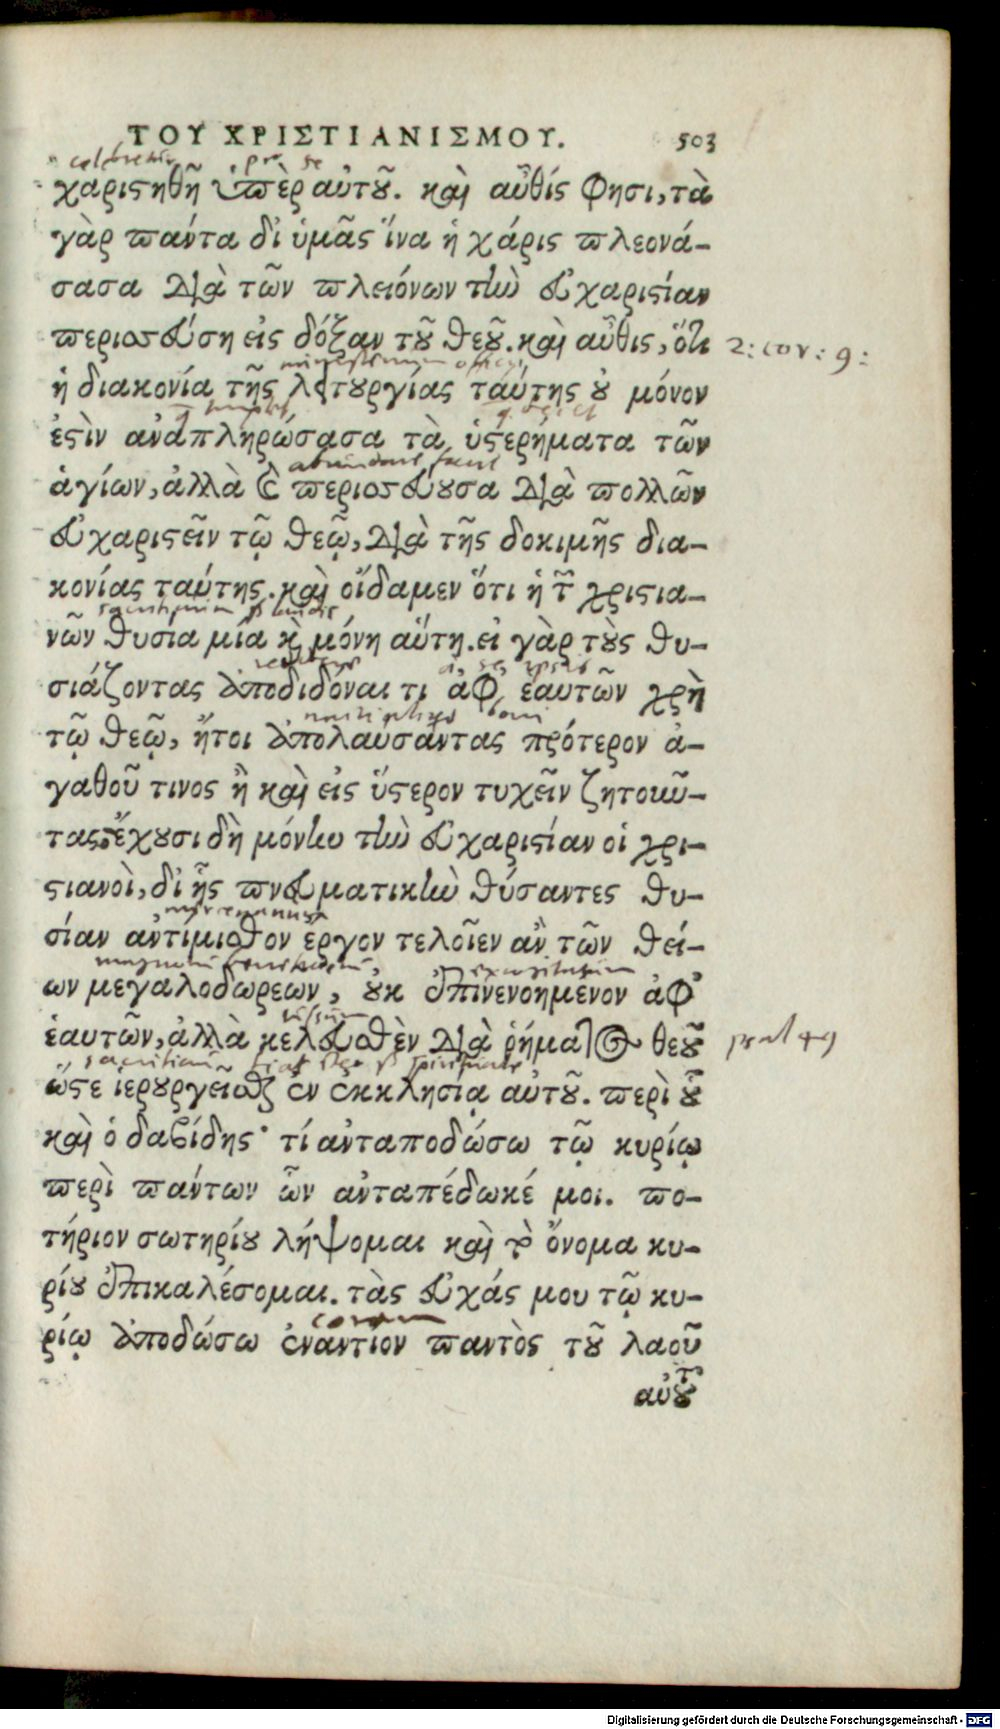 ΤΟΥ ΧΡΙΣΤΙΑΝΙΣΜΟΥ. 503
pro se
χαριστηθῇ ὑπὲρ αὐτοῦ. καὶ αὖθίς φησι, τὰ
γὰρ πάντα δι ὑμᾶς ἵνα ἡ χάρις πλεονά-
σασα διὰ τῶν πλειόνων τὴν εὐχαριστίαν
περισσεύση εἰς δόξαν τοῦ θεοῦ. καὶ αὖθις, ὅτι 2: cor: 9:
ἡ διακονία τῆς λειτουργίας ταύτης οὐ μόνον
ἐστὶν ἀναπληρώσασα τὰ ὑστερήματα τῶν
ἁγίων, ἀλλὰ καὶ περισσεύουσα διὰ πολλῶν
εὐχαριστεῖν τῷ θεῷ, διὰ τῆς δοκιμῆς δια-
κονίας ταύτης. καὶ οἴδαμεν ὅτι ἡ τῶν χριστια-
νῶν θυσία μία καὶ μόνη αὕτη. εἰ γὰρ τοὺς θυ-
σιάζοντας ἀποδιδόναι τι ἀφ' ἑαυτῶν χρὴ
τῷ θεῷ, ἤτοι ἀπολαύσαντας πρότερον ἀ-
γαθοῦ τινος ἢ καὶ εἰς ὕστερον τυχεῖν ζητοῦν-
τας. ἔχουσι δὴ μόνην τὴν εὐχαριστίαν οἱ χρι-
στιανοὶ, δι ἧς πνευματικὴν θύσαντες θυ-
σίαν ἀντίμισθον ἔργον τελοῖεν ἂν τῶν θεί-
ων μεγαλοδωρεων, οὐκ ἐπινενοημένον ἀφ'
ἑαυτῶν, ἀλλὰ κελευσθὲν διὰ ῥήματος θεοῦ
ὥστε ἱερουργεῖσθαι ἐν ἐκκλησίᾳ αὐτοῦ. περὶ οὗ
καὶ ὁ δαβίδης· τί ἀνταποδώσω τῷ κυρίῳ
περὶ πάντων ὧν ἀνταπέδωκέ μοι. πο-
τήριον σωτηρίου λήψομαι καὶ τὸ ὄνομα κυ-
ρίου ἐπικαλέσομαι. τὰς εὐχάς μου τῷ κυ-
coram
ρίῳ ἀποδώσω ἐναντίον παντὸς τοῦ λαοῦ
αὐτοῦ
Digitalisierung gefördert durch die Deutsche Forschungsgemeinschaft - DFG